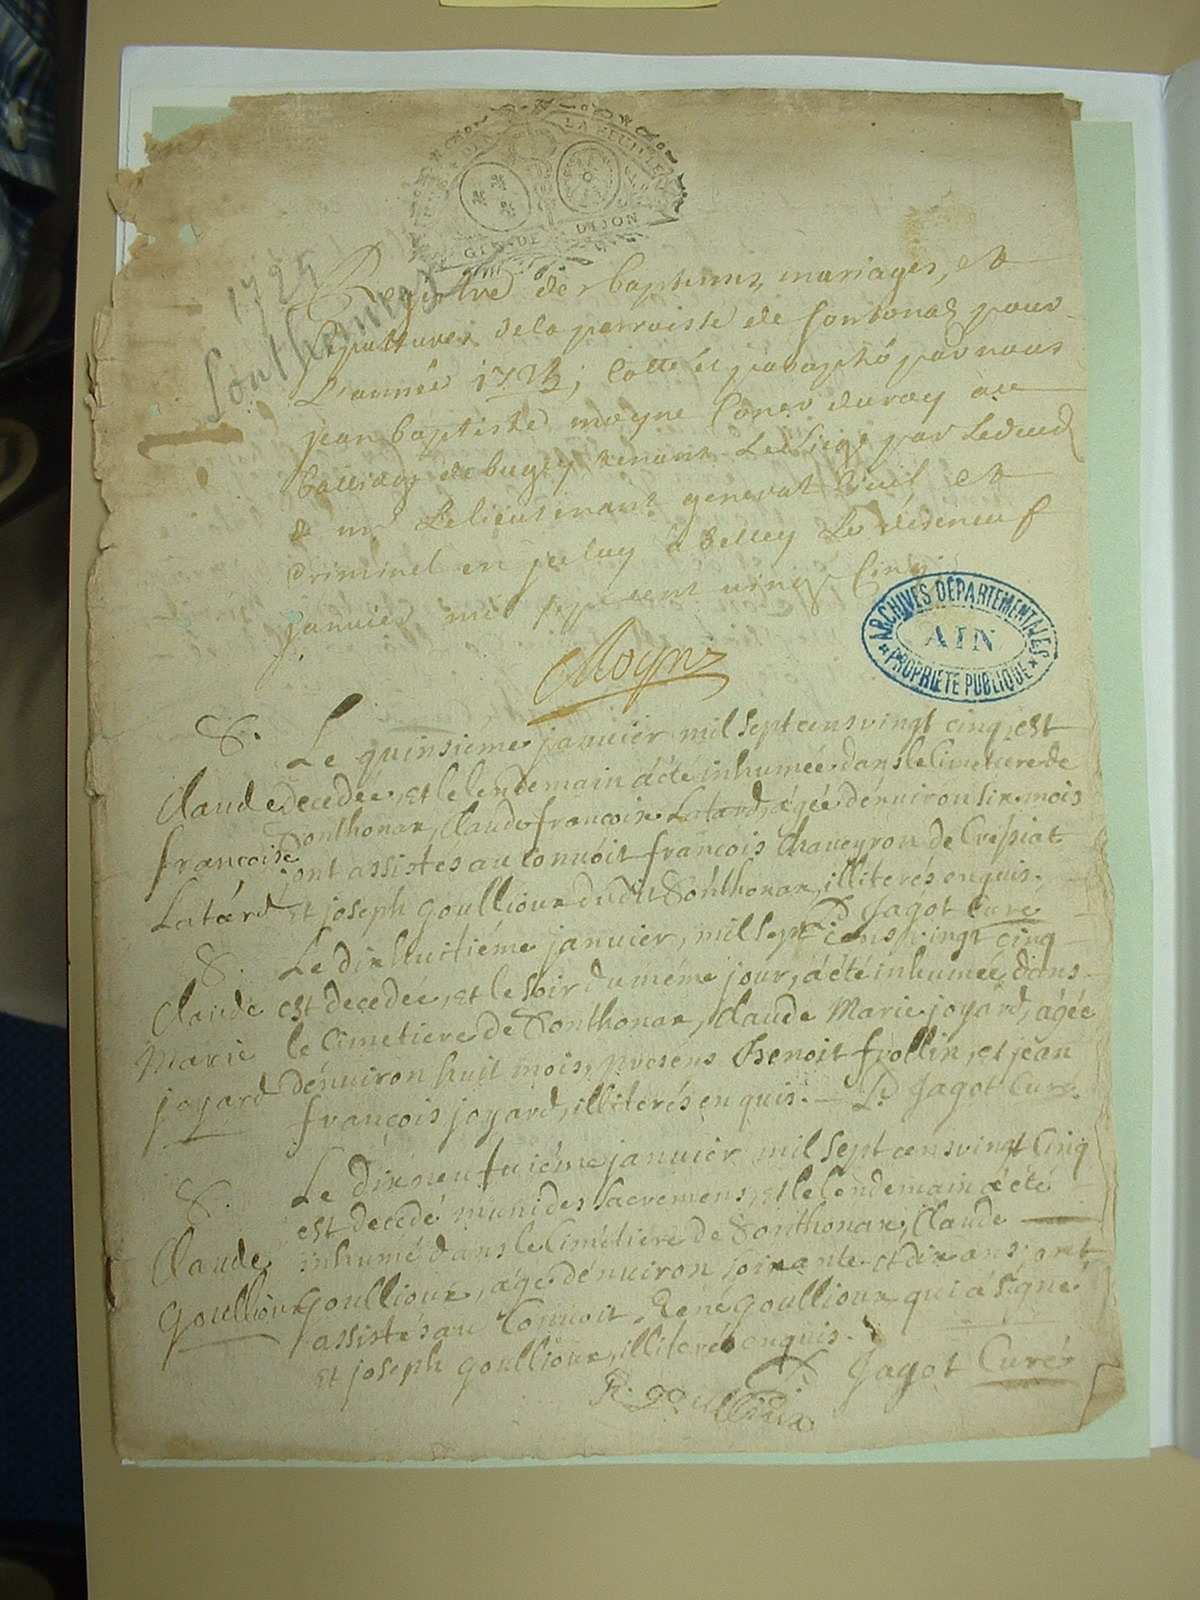 LA FEUILLE
GN.DE DIJON
1725
Sonthonnax
Registre des baptemes, mariages, et
sepultures de la parroisse de sontonas pour
L'année 1725, Cotté et paraphé par nous
jean baptiste moyne Coner du roy au
bailliage de bugey tenant Le Siege par Le deced
de mr Le lieutenant general Civil et
Criminel en jceluy a Belley Le disneuf
janvier mil sept cent vingt Cinq
Moyne
ARCHIVES DÉPARTEMENTALES
AIN
PROPRIÉTÉ PUBLIQUE
S. Le quinsiéme janvier mil sept cens vingt cinq, est
Claude decedée, et le lendemain a été inhumée dans le Cimetiere de
françoise Sonthonax, Claude françoise Latard, agée d'énuiron six mois
ont assistés au Conuoit françois Chaueyron de Crépiat
Latard et joseph Goullioux dudit Sonthonax, illiterés enquis.
D Jagot Curé
S. Le dixhuitiéme janvier, mil sept cens vingt cinq
Claude est decedée, et le soir du méme jour, a été inhumée dans
Marie le Cimetiere de Sonthonax, Claude Marie joyard, agée
joyard d'énuiron huit mois, presens Benoit frollin, et jean
françois joyard, illiterés enquis. — D. Jagot Curé
S. Le dixneufuiéme janvier mil sept cens vingt Cinq
est decedé munides sacremens, et le lendemain a été
Claude inhumé dans le Cimétiere de Sonthonax, Claude
Goullioux Goullioux, agé d'énuiron soixante et dix ans, ont
assistés au Conuoit, René Goullioux qui a signé
et joseph Goullioux, illiteré enquis.
D Jagot Curé
R. goullioux